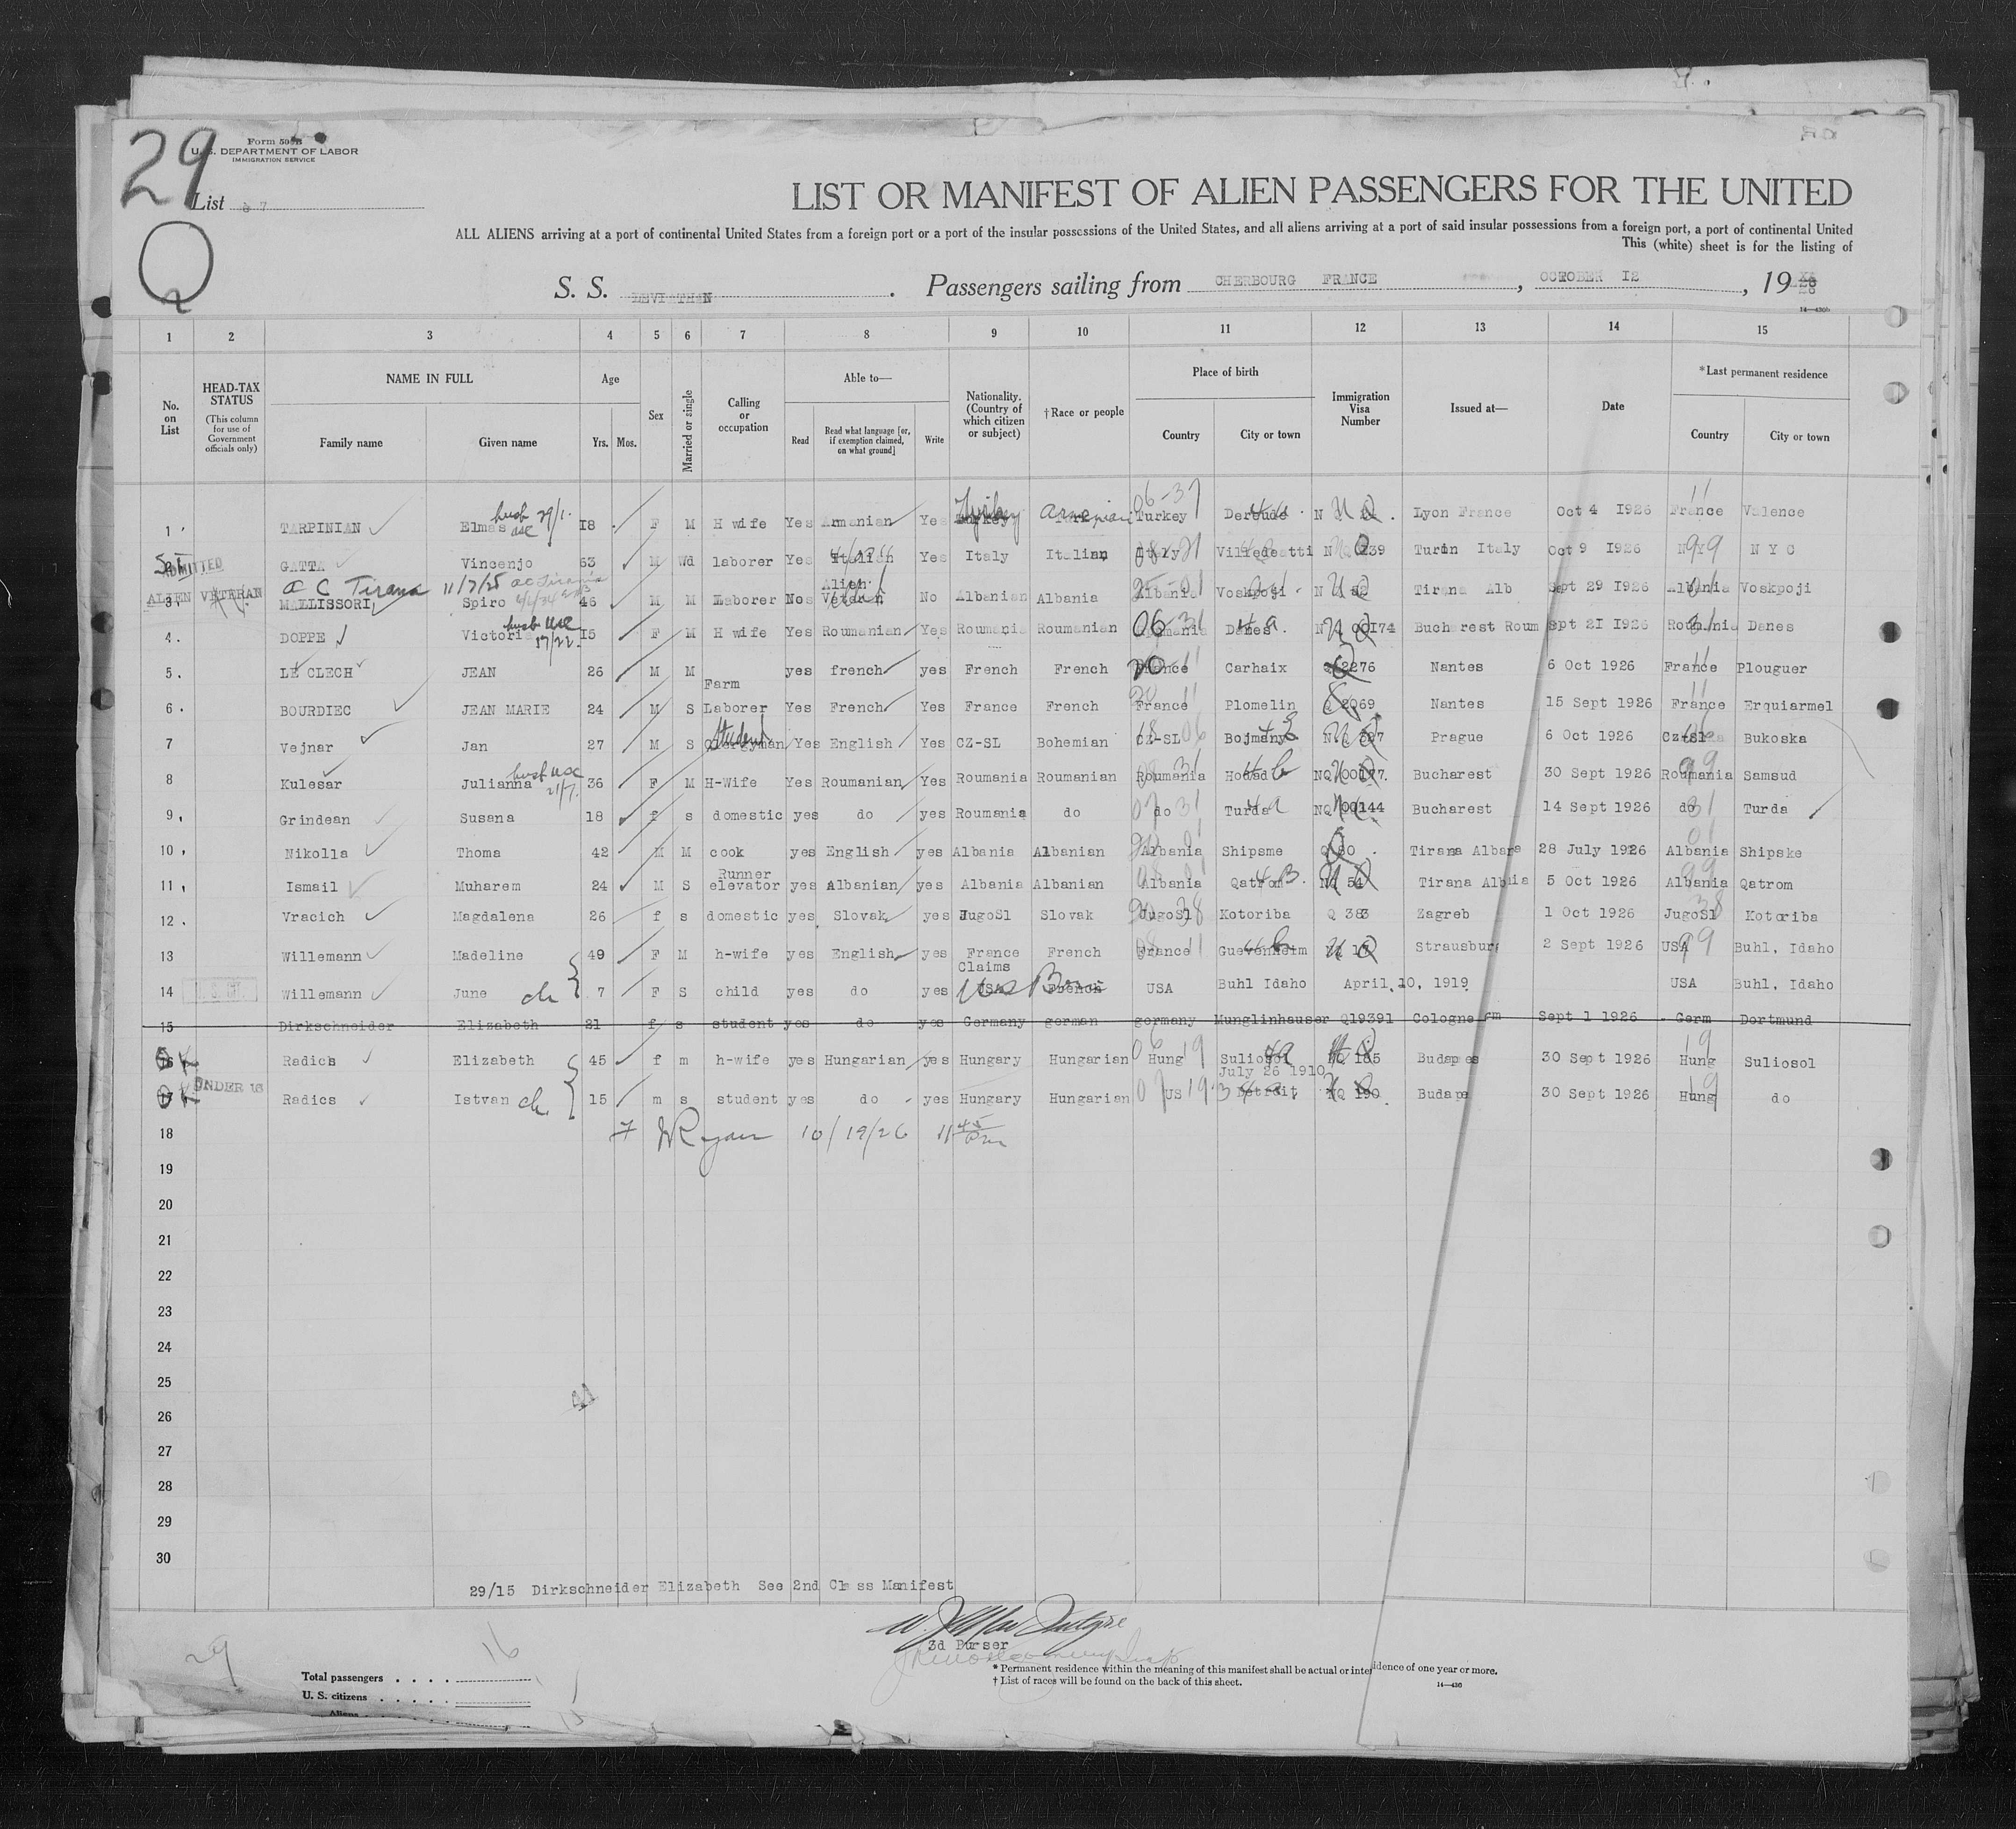 29
Form 500B
U. S. DEPARTMENT OF LABOR
IMMIGRATION SERVICE
List 7
LIST OR MANIFEST OF ALIEN PASSENGERS FOR THE UNITED
ALL ALIENS arriving at a port of continental United States from a foreign port or a port of the insular possessions of the United States, and all aliens arriving at a port of said insular possessions from a foreign port, a port of continental United
This (white) sheet is for the listing of
S. S. LEVIATHAN . Passengers sailing from CHERBOURG FRANCE , OCTOBER I2 , 19
1 2 3 4 5 6 7 8 9 10 11 12 13 14 15
No. on List
HEAD-TAX STATUS (This column for use of Government officials only)
NAME IN FULL
Family name Given name
Age
Yrs. Mos.
Sex
Married or single
Calling or occupation
Able to—
Read Read what language [or, if exemption claimed, on what ground] Write
Nationality. (Country of which citizen or subject)
†Race or people
Place of birth
Country City or town
Immigration Visa Number
Issued at—
Date
*Last permanent residence
Country City or town
1 TARPINIAN Elmas husb 29/1. I8 F M H wife Yes Armenian Yes Turkey Armenian Turkey Lyon France Oct 4 I926 France Valence
ADMITTED GATTA Vincenjo 63 M Wd laborer Yes Italian Yes Italy Italian Italy 239 Turin Italy Oct 9 I926 NY N Y C
a C Tirana 11/7/25
ALIEN VETERAN 3. MALLISSORI Spiro 46 M M Laborer No No Albanian Albania Albania Voskpoji Tirana Alb Sept 29 I926 Albania Voskpoji
4. DOPPE Victoria husb USC I5 F M H wife Yes Roumanian Yes Roumania Roumanian Danes 00I74 Bucharest Roum Sept 2I I926 Roumania Danes
5. LE CLECH JEAN 26 M M yes french yes French French France Carhaix 2276 Nantes 6 Oct 1926 France Plouguer
6. BOURDIEC JEAN MARIE 24 M S Farm Laborer Yes French Yes France French France Plomelin 2069 Nantes 15 Sept 1926 France Erquiarmel
7 Vejnar Jan 27 M S Student Clergyman Yes English Yes CZ-SL Bohemian CZ-SL Prague 6 Oct 1926 Cz-Sl Bukoska
8 Kulesar Julianna husb USC 36 F M H-Wife Yes Roumanian Yes Roumania Roumanian Roumania NQ 00177 Bucharest 30 Sept 1926 Roumania Samsud
9. Grindean Susana 18 f s domestic yes do yes Roumania do do Turda NQ 00144 Bucharest 14 Sept 1926 do Turda
10. Nikolla Thoma 42 M M cook yes English yes Albania Albanian Albania Shipsme Tirana 28 July 1926 Albania Shipske
11. Ismail Muharem 24 M S Runner elevator yes Albanian yes Albania Albanian Albania Qatrom 54 Tirana 5 Oct 1926 Albania Qatrom
12. Vracich Magdalena 26 f s domestic yes Slovak yes JugoSl Slovak JugoSl Kotoriba Q 383 Zagreb 1 Oct 1926 JugoSl Kotoriba
13 Willemann Madeline 49 F M h-wife yes English yes France French France Guevenheim Strausburg 2 Sept 1926 USA Buhl, Idaho
14 Willemann June ch 7 F S child yes do yes Claims USA French USA Buhl Idaho April, 10, 1919 USA Buhl, Idaho
15 Dirkschneider Elizabeth 21 f s student yes do yes Germany german germany Munglinhauser Q19391 Cologne Sept 1 1926 Germ Dortmund
16 Radics Elizabeth 45 f m h-wife yes Hungarian yes Hungary Hungarian Hung Suliosol 185 Budapes 30 Sept 1926 Hung Suliosol
17 UNDER 16 Radics Istvan ch. 15 m s student yes do yes Hungary Hungarian US July 26 1910 Detroit, 190 Budape 30 Sept 1926 Hung do
18 Ryan 10/19/26 11 45 Pm
19
20
21
22
23
24
25
26
27
28
29
30
29/15 Dirkschneider Elizabeth See 2nd Class Manifest
3d Purser
29
Total passengers . . . . 16
U. S. citizens . . . . . 1
Aliens
* Permanent residence within the meaning of this manifest shall be actual or intended residence of one year or more.
† List of races will be found on the back of this sheet.
14—436